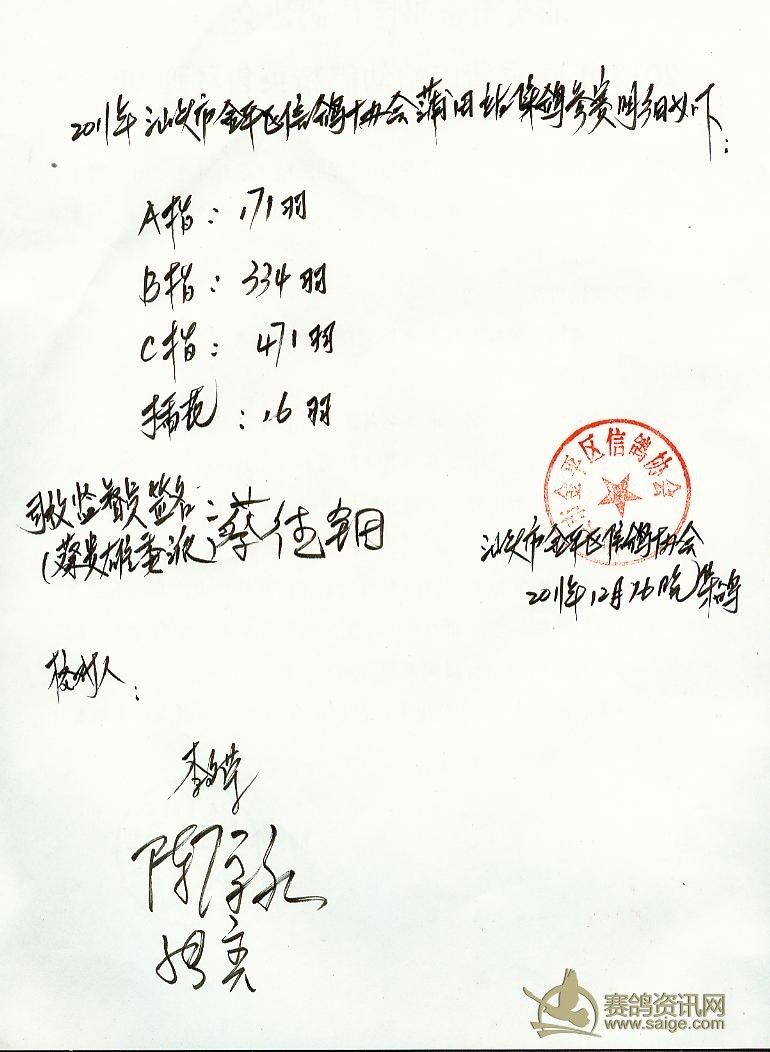 2011年汕头市金平区信鸽协会蒲田站集鸽参赛明细如下：
A指：171羽
B指：334羽
C指：471羽
插花：16羽
司放监督员签名：蔡佳钿
(蔡贵雄委派)
金平区信鸽协会
汕头市金平区信鸽协会
2011年12月16晚集鸽
校对人：
赛鸽资讯网
www.saige.com